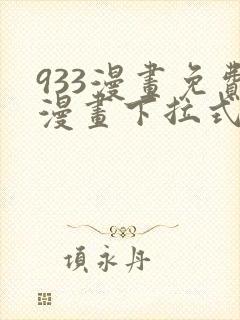 933漫畫免費
漫畫下拉式
項永丹